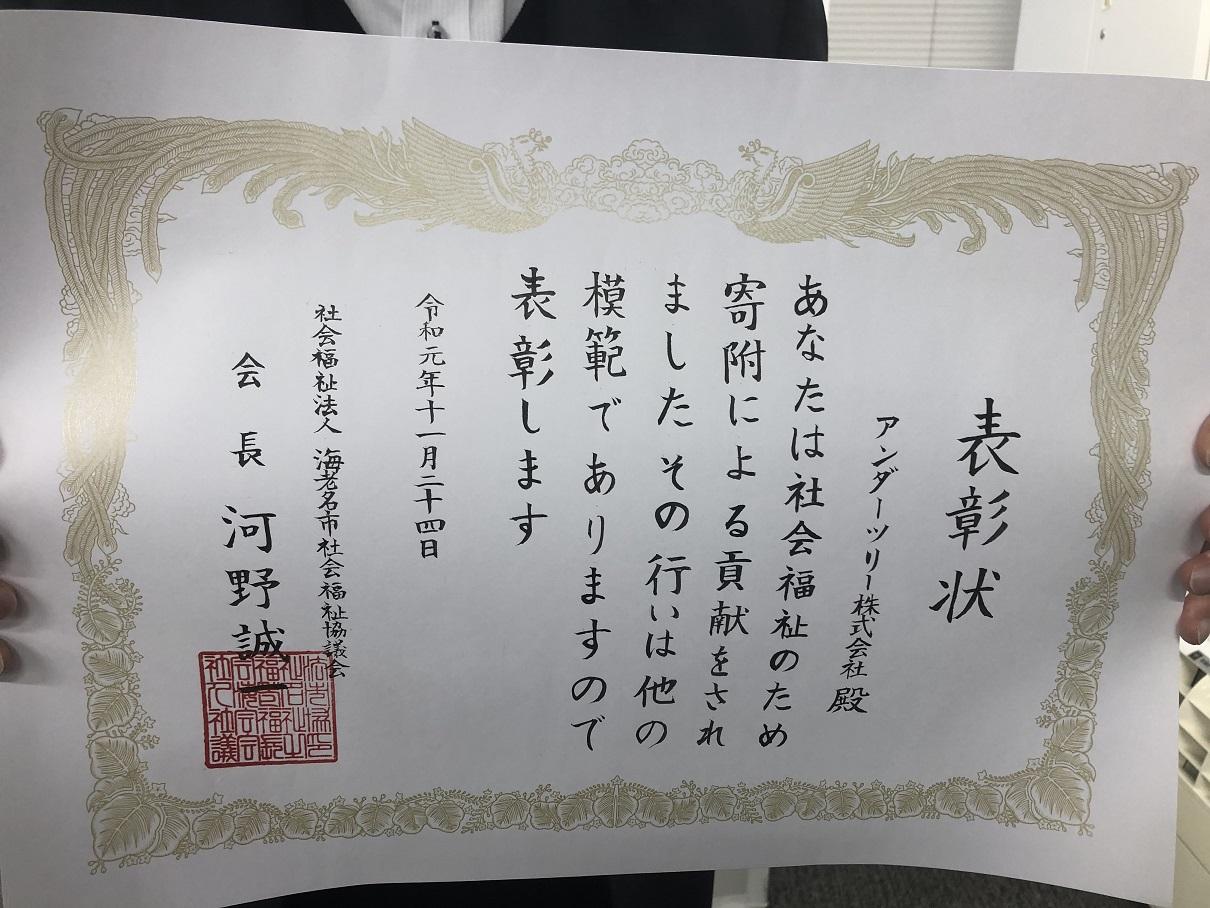 表彰状
アンダーツリー株式会社 殿
あなたは社会福祉のため
寄附による貢献をされ
ましたその行いは他の
模範でありますので
表彰します
令和元年十一月二十四日
社会福祉法人 海老名市社会福祉協議会
会長 河野誠一